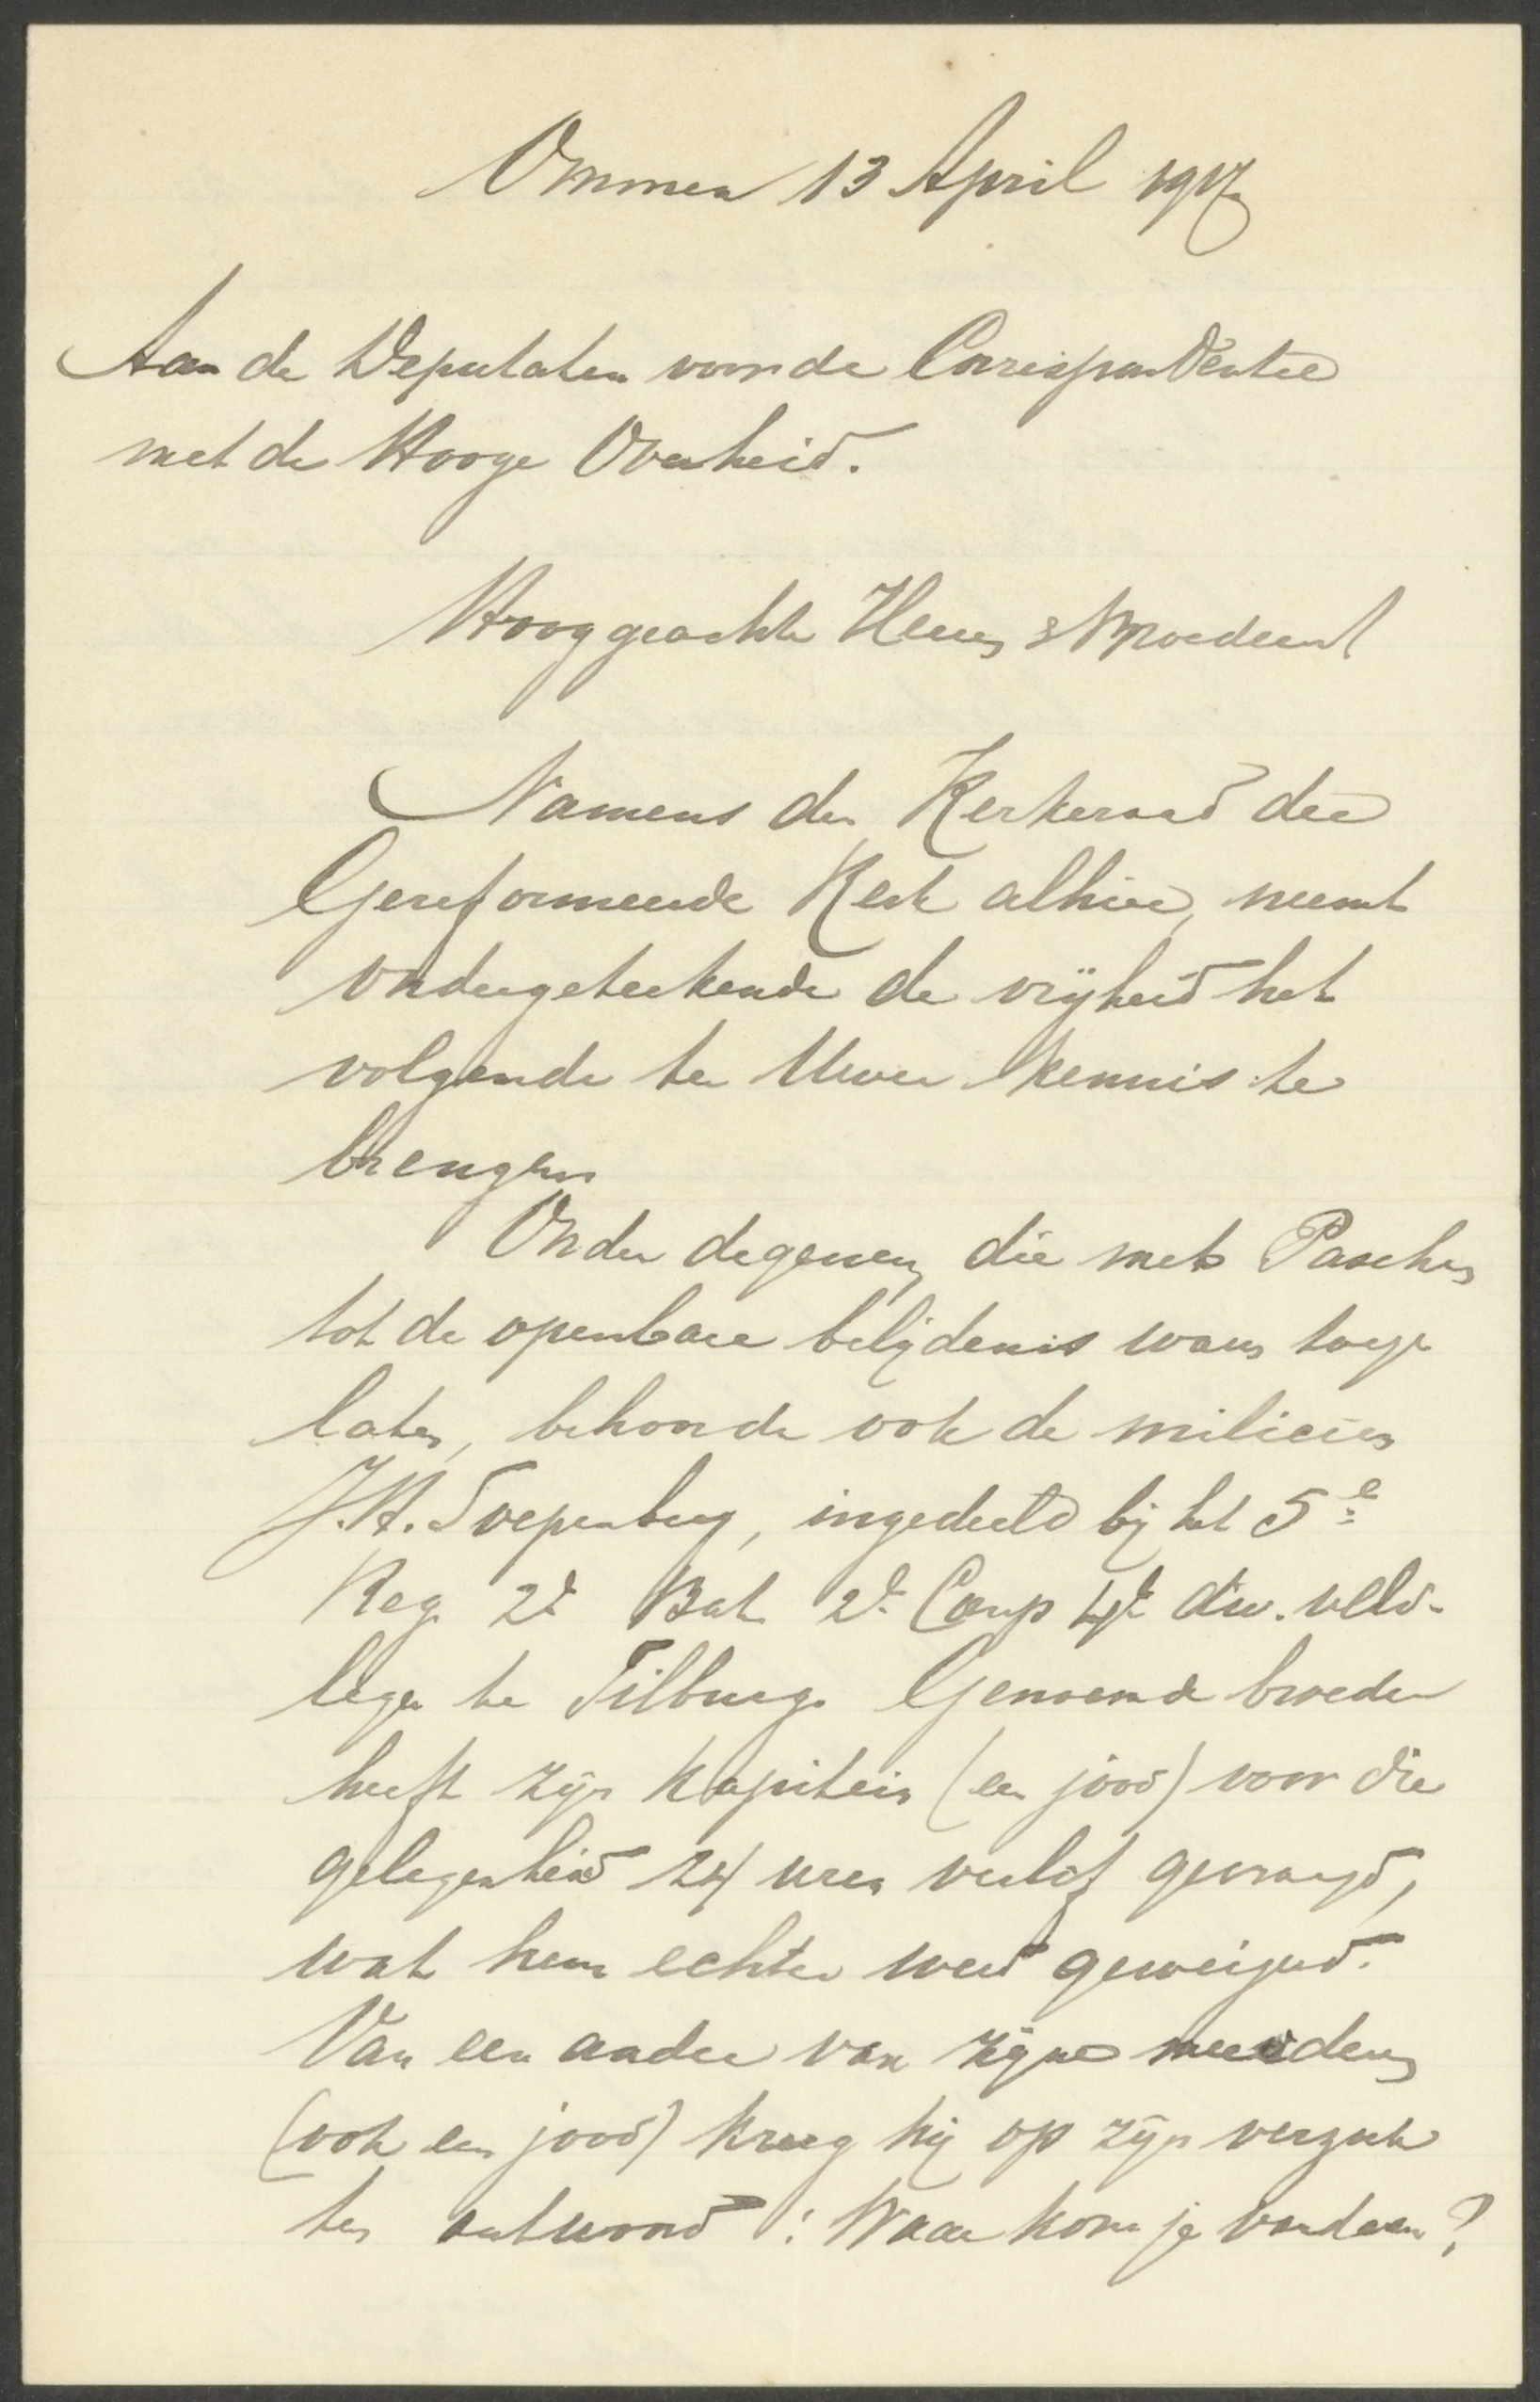 Ommen 13 April 1917
Aan de Deputaten voor de Correspondentie
met de Hooge Overheid.
Hooggeachte Heeren & Broeders!
Namens den Kerkeraad der
Gereformeerde Kerk alhier, neemt
ondergeteekende de vrijheid het
volgende ter Uwer kennis te
brengen
Onder degenen, die met Paschen
tot de openbare belijdenis waren toege
laten, behoorde ook de milicien
J.H. Toepenberg, ingedeeld bij het 5e
Reg 2e Bat. 2e Comp 4de div. veld-
leger te Tilburg. Genoemde broeder
heeft zijn kapitein (een jood) voor die
gelegenheid 24 uren verlof gevraagd,
wat hem echter werd geweigerd.
Van een ander van zijne meerderen
(ook een jood) kreeg hij op zijn verzoek
ten antwoord: Waar kom je vandaan?